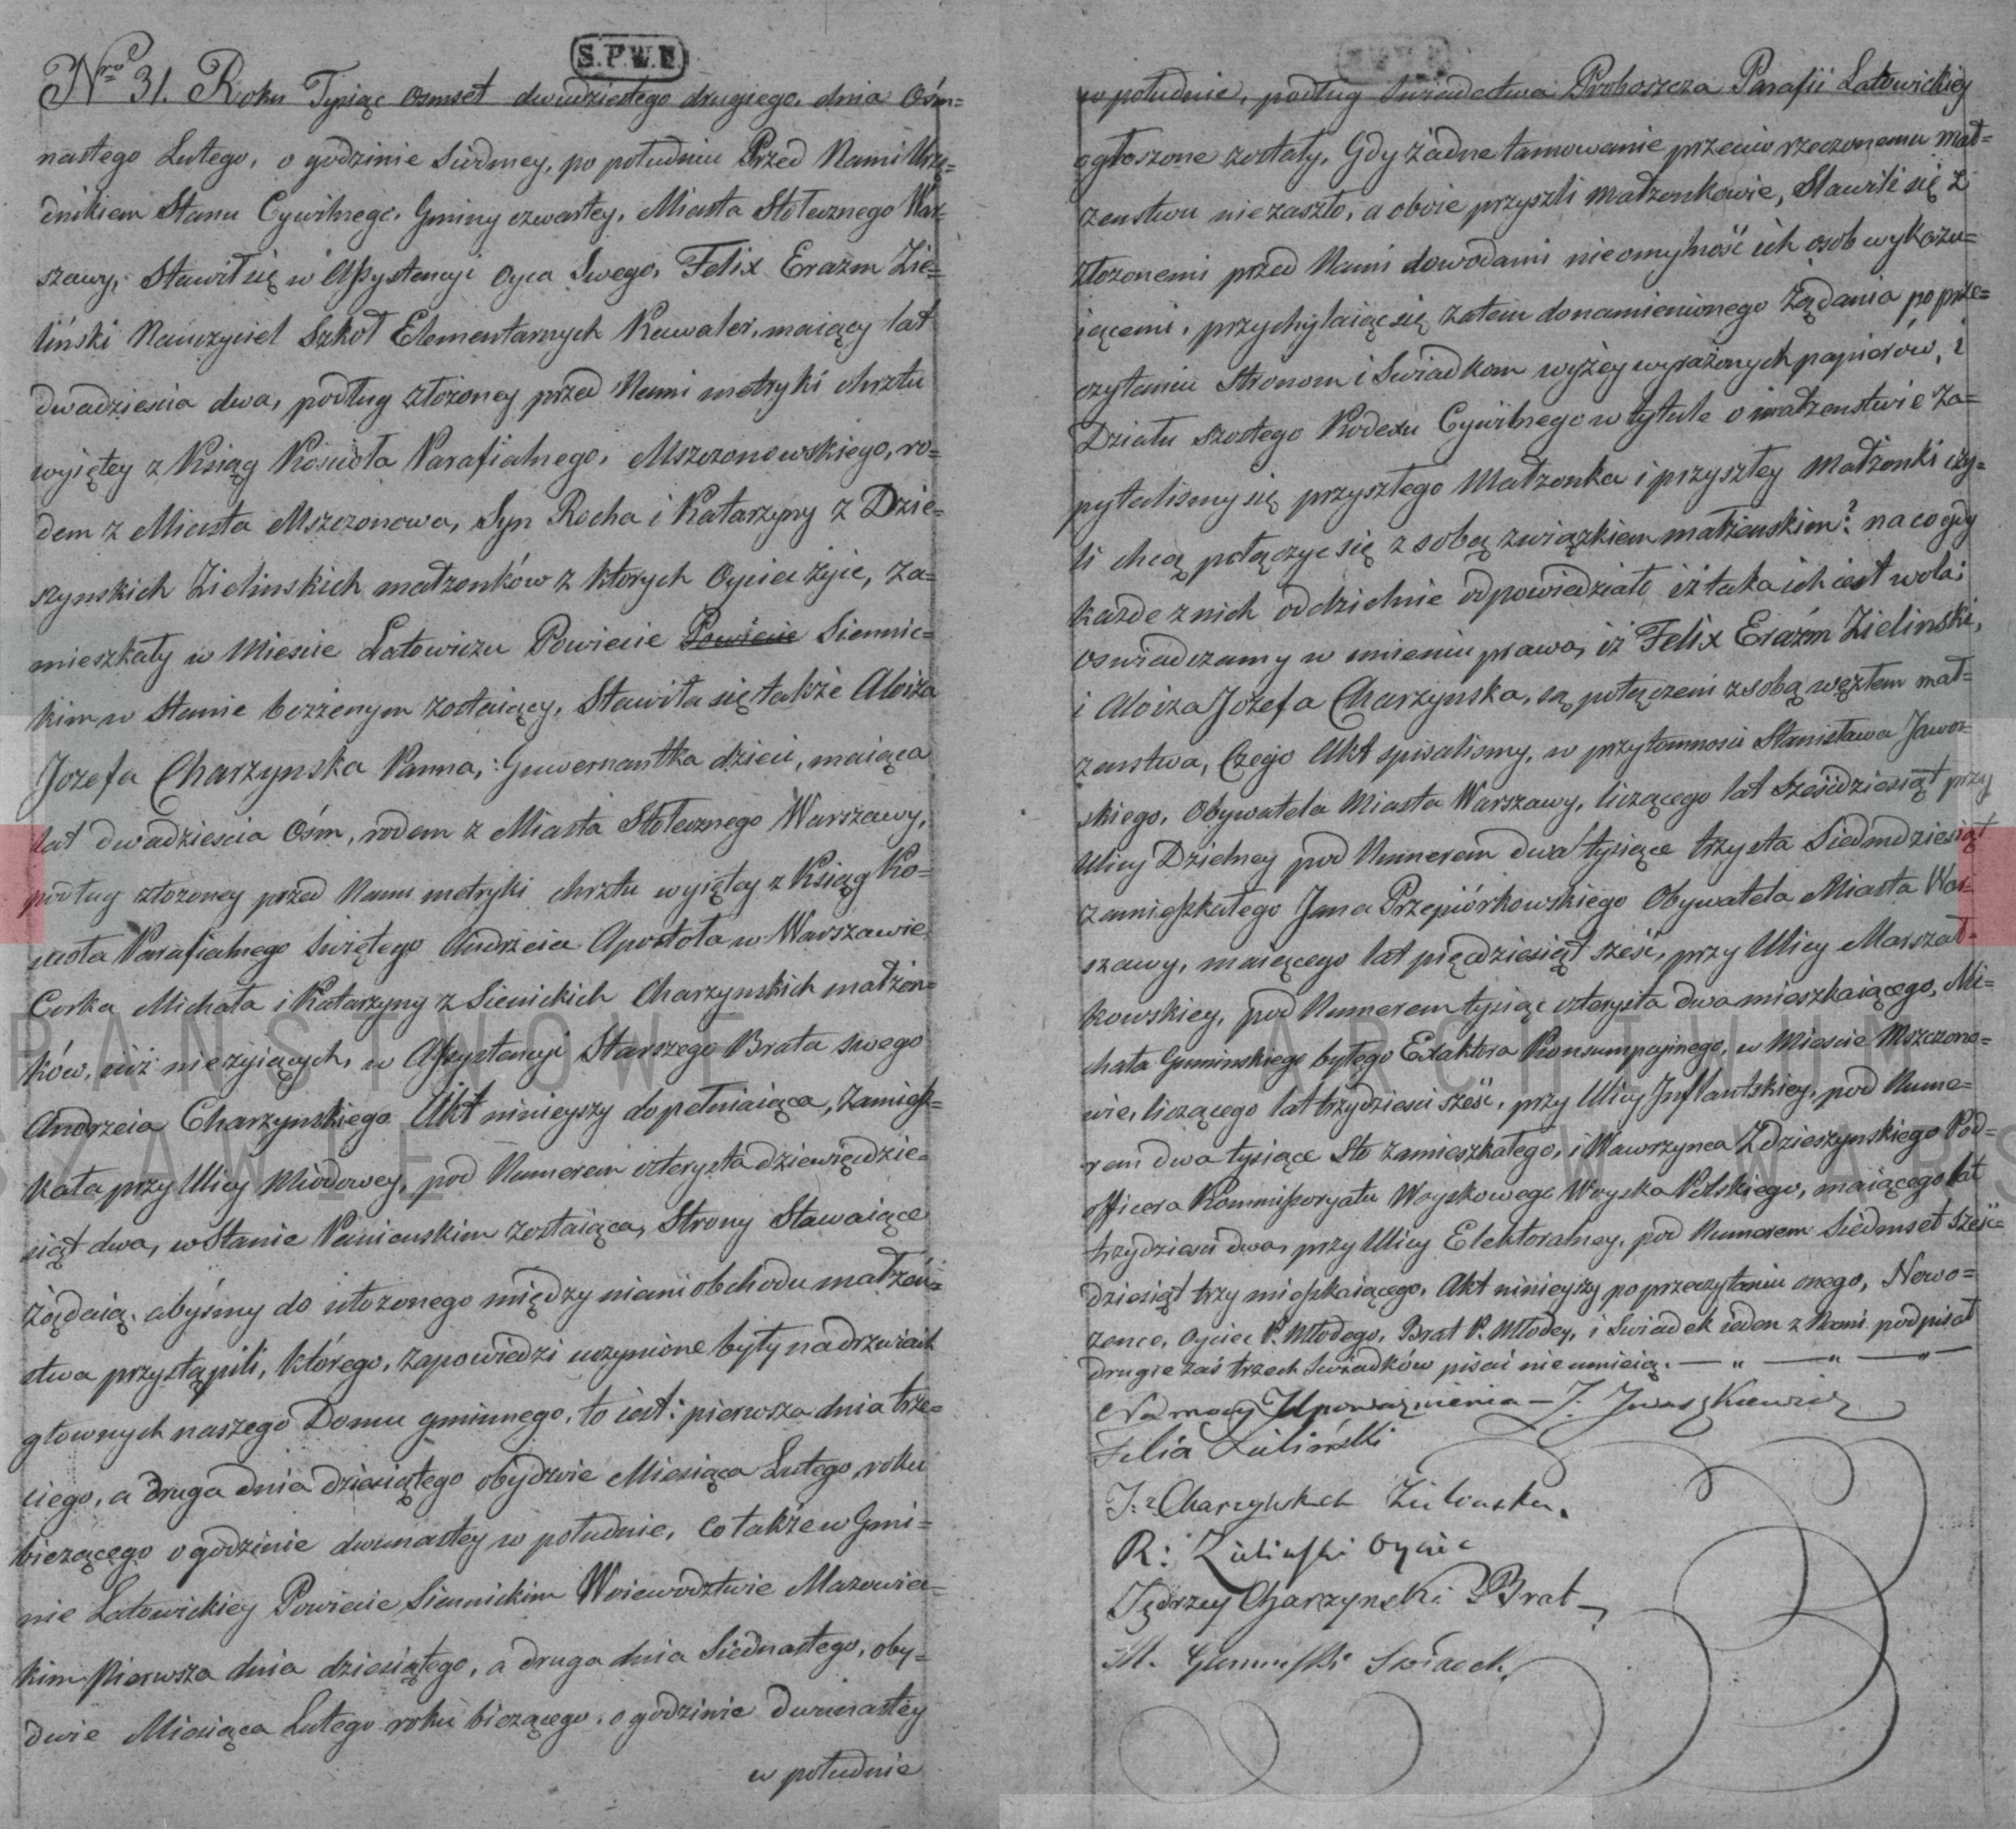 S.P.W.N.
Nro 31. Roku Tysiąc osmset dwudziestego drugiego, dnia Ośm=
nastego Lutego, o godzinie Siódmey, po południu Przed Nami Urzę=
dnikiem Stanu Cywilnego, Gminy czwartey, Miasta Stołecznego War=
szawy, Stawił się w Assystencyi Oyca Swego, Felix Erazm Zie=
liński Nauczyciel Szkół Elementarnych Kawaler, maiący lat
dwadzieścia dwa, podług złożoney przed Nami metryki chrztu
wyiętey z Ksiąg Kościoła Parafialnego, Mszczonowskiego, ro=
dem z Miasta Mszczonowa, Syn Rocha i Katarzyny z Dzie=
szynskich Zielinskich małżonków z których Oyciec żyie, za=
mieszkały w Mieście Latowiczu Powiecie Powiecie Siennic=
kim w Stanie bezżenym zostaiący, Stawiła się także Aloiza
Jozefa Charzynska Panna, Guwernantka dzieci, maiąca
lat dwadzieścia Ośm, rodem z Miasta Stołecznego Warszawy,
podług złożoney przed Nami metryki chrztu wyiętey z Ksiąg Ko=
ścioła Parafialnego Świętego Andrzeia Apostoła w Warszawie
Corka Michała i Katarzyny z Sienickich Charzynskich małżon=
ków, iuż nieżyiących, w Assystencyi Starszego Brata swego
Andrzeia Charzynskiego Akt ninieyszy dopełniaiąca, zamiesz=
kała przy Ulicy Miodowey, pod Numerem czterysta dziewięćdzie=
siąt dwa, w Stanie Panieńskim zostaiąca, Strony Stawaiące
żądaią, abyśmy do ułożonego między niemi obchodu małżeń=
stwa przystąpili, którego, zapowiedzi uczynione były na drzwiach
głownych naszego Domu gminnego, to iest: pierwsza dnia trze=
ciego, a druga dnia dziesiątego obydwie Miesiąca Lutego, roku
bieżącego o godzinie dwunastey w południe, co także w Gmi=
nie Latowickiey Powiecie Siennickim Woiewództwie Mazowiec=
kim Pierwsza dnia dziesiątego, a druga dnia Siedmastego, oby=
dwie Miesiąca Lutego roku bieżącego, o godzinie dwunastey
w południe
w południe, podług Świadectwa Proboszcza Parafii Latowickiey
ogłoszone zostały, Gdy żadne tamowanie przeciw rzeczonemu mał=
żenstwu nie zaszło, a oboie przyszli małżonkowie, Stawili się z
złożonemi przed Nami dowodami nieomylność ich osob wykazu=
iącemi, przychylaiąc się zatem do namienionego żądania po prze=
czytaniu Stronom i Świadkom wyżey wyrażonych papierów, i
Działu szóstego Kodexu Cywilnego w tytule o małżenstwie Za=
pytalismy się przyszłego Małżonka i przyszłey Małżonki czy=
li chcą połączyć się z sobą związkiem małżeńskim? na co gdy
każde z nich oddzielnie odpowiedziało iż taka ich iest wola;
oświadczamy w imieniu prawa, iż Felix Erazm Zielinski,
i Aloiza Jozefa Charzynska, są połączeni z sobą węzłem mał=
żenstwa, Czego Akt spisalismy, w przytomności Stanisława Jawor=
skiego, Obywatela Miasta Warszawy, liczącego lat sześćdziesiąt przy
Ulicy Dzielney pod Numerem dwa tysiące trzysta Siedmdziesiąt
zamieszkałego Jana Przepiórkowskiego Obywatela Miasta War=
szawy, maiącego lat pięćdziesiąt sześć, przy Ulicy Marszał=
kowskiey, pod Numerem tysiąc czterysta dwa mieszkaiącego, Mi=
chała Guminskiego byłego Exaktora Konsumpcyinego, w Mieście Mszczono=
wie, liczącego lat trzydzieści sześć, przy Ulicy Inflantskiey, pod Nume=
rem dwa tysiące Sto zamieszkałego, i Wawrzynca Zdzieszynskiego Pod=
officera Kommissoryatu Woyskowego Woyska Polskiego, maiącego lat
trzydzieści dwa, przy Ulicy Elektoralney, pod Numerem Siedmset sześć=
dziesiąt trzy mieszkaiącego, Akt ninieyszy po przeczytaniu onego, Nowo=
żence, Oyciec P. Młodego, Brat P. Młodey, i Świadek ieden z Nami podpisał
drugie zaś trzech Świadków pisać nie umieią.
Na mocy Upoważnienia - J. Iwaszkiewicz
Felix Zieliński
J. z Charzynskich Zielinska
R: Zielinski Oyciec
Jędrzey Charzynski Brat
M. Guminski Świadek
PAŃSTWOWE ARCHIWUM
SZAWIE W WARS